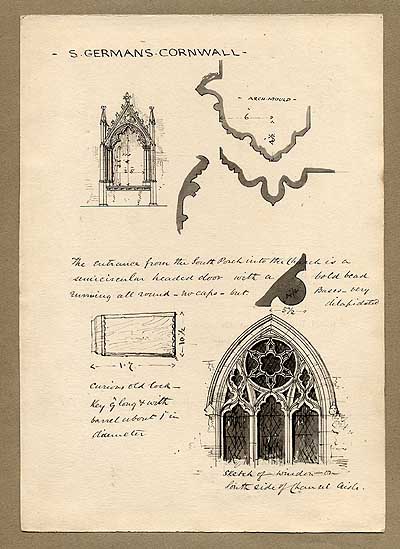 - S. GERMANS. CORNWALL -
- ARCH-MOULD -
6
The entrance from the South Porch into the Church is a
semicircular headed door with a bold bead
running all round - no caps - but Bases - very
dilapidated
5½
10½
1.7
Curious old lock -
Key long & with
barrel about 1 in
diameter
Sketch of window - on
South side of Chancel Aisle.